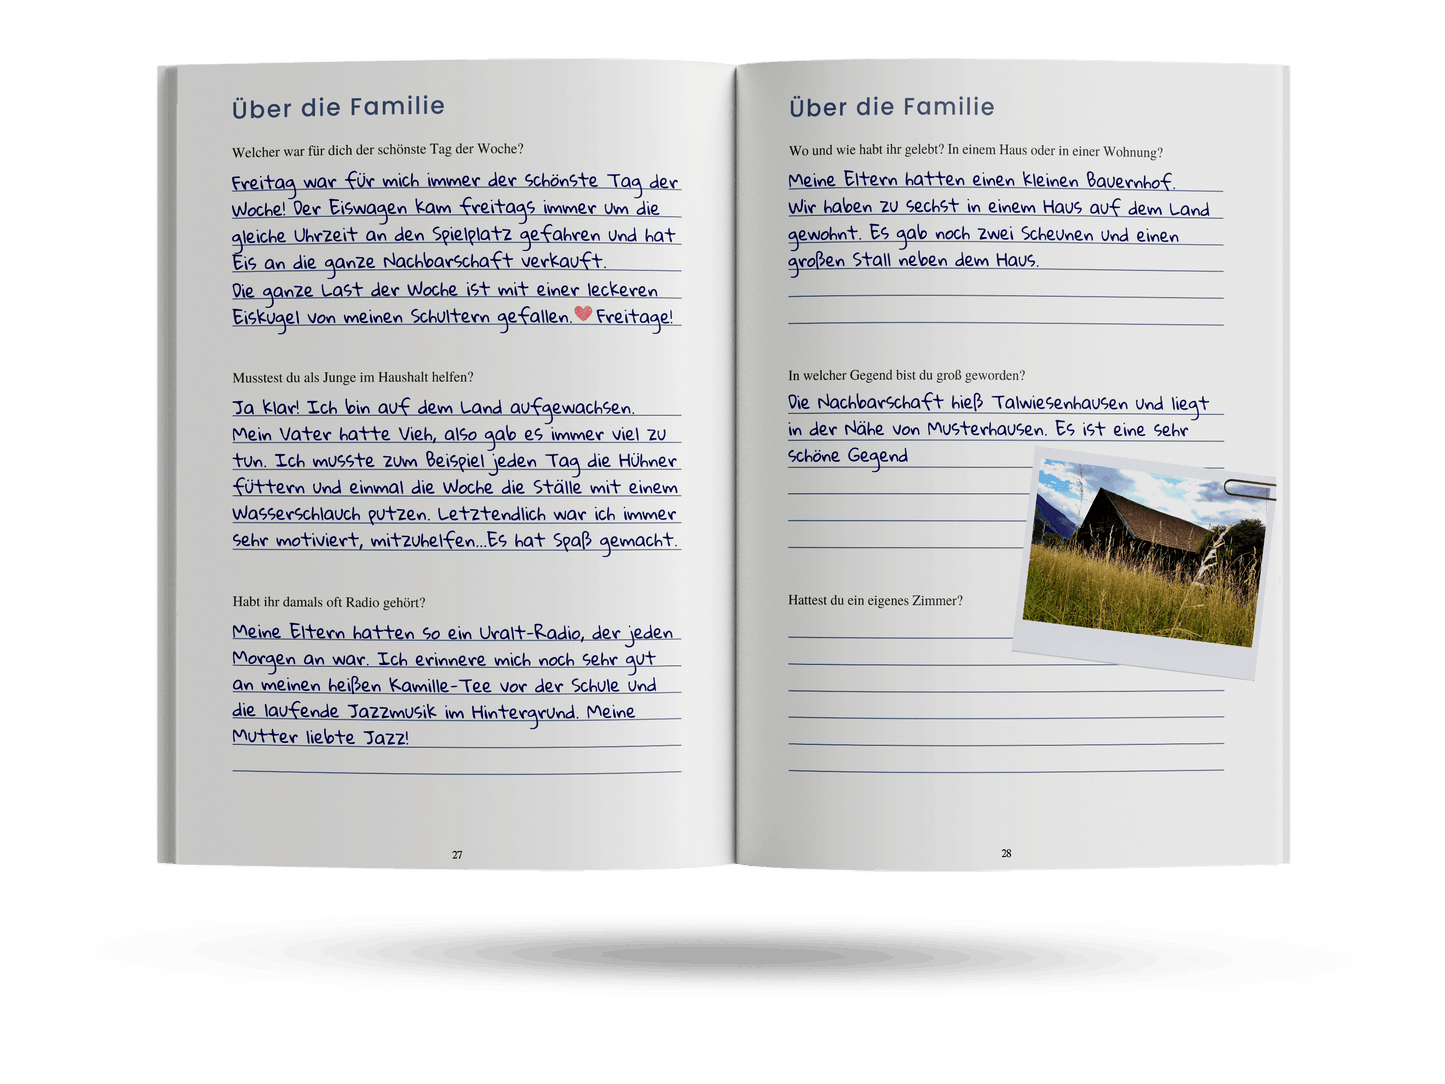 Über die Familie
Welcher war für dich der schönste Tag der Woche?
Freitag war für mich immer der schönste Tag der
Woche! Der Eiswagen kam freitags immer um die
gleiche Uhrzeit an den Spielplatz gefahren und hat
Eis an die ganze Nachbarschaft verkauft.
Die ganze Last der Woche ist mit einer leckeren
Eiskugel von meinen Schultern gefallen.❤Freitage!
Musstest du als Junge im Haushalt helfen?
Ja klar! Ich bin auf dem Land aufgewachsen.
Mein Vater hatte Vieh, also gab es immer viel zu
tun. Ich musste zum Beispiel jeden Tag die Hühner
füttern und einmal die Woche die Ställe mit einem
Wasserschlauch putzen. Letztendlich war ich immer
sehr motiviert, mitzuhelfen...Es hat Spaß gemacht.
Habt ihr damals oft Radio gehört?
Meine Eltern hatten so ein Uralt-Radio, der jeden
Morgen an war. Ich erinnere mich noch sehr gut
an meinen heißen Kamille-Tee vor der Schule und
die laufende Jazzmusik im Hintergrund. Meine
Mutter liebte Jazz!
27
Über die Familie
Wo und wie habt ihr gelebt? In einem Haus oder in einer Wohnung?
Meine Eltern hatten einen kleinen Bauernhof.
Wir haben zu sechst in einem Haus auf dem Land
gewohnt. Es gab noch zwei Scheunen und einen
großen Stall neben dem Haus.
In welcher Gegend bist du groß geworden?
Die Nachbarschaft hieß Talwiesenhausen und liegt
in der Nähe von Musterhausen. Es ist eine sehr
schöne Gegend
Hattest du ein eigenes Zimmer?
28